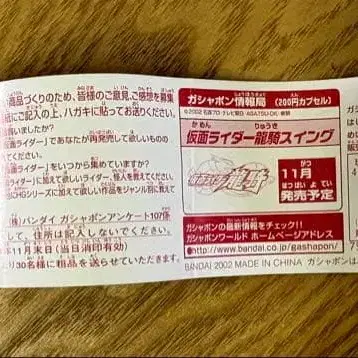 商品づくりのため、皆様のご意見、ご感想を募集
紙にご記入の上、ハガキに貼ってお送りください。
買いましたか?
面ライダー」であなたが再発売して欲しいものの
てください。
面ライダー」をいつから集めていますか?
」に加えて欲しいライダー、怪人を教えてください。
HGシリーズに加えて欲しい作品をジャンル別に教えて
(株)バンダイ ガシャポンアンケート107係
して、住所は記入しないでください。
年11月末日(当日消印有効)
より30名様に粗品を送らせていただき
ガシャポン情報局 (200円カプセル)
©2002 石森プロ・テレビ朝日・ADK・東映
仮面ライダー龍騎スイング
龍騎
11月
発売予定
ガシャポンの最新情報をチェック!!
ガシャポンワールド ホームページアドレス
●http://www.bandai.co.jp/gashapon/
BANDAI 2002 MADE IN CHINA ガシャポンは